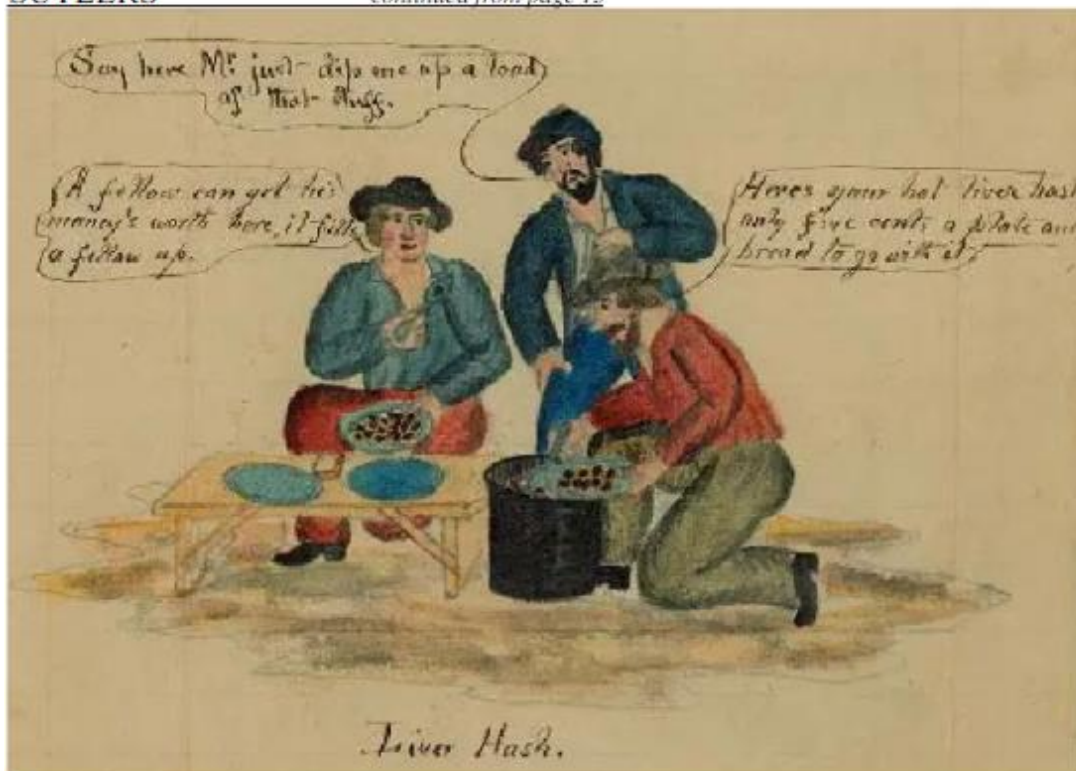 SUTLERS continued from page 15
Say here Mr. just dip me up a load
of that stuff.
A fellow can get his
money's worth here, it fills
a fellow up.
Heres your hot liver hash
only five cents a plate and
bread to go with it,
Liver Hash.